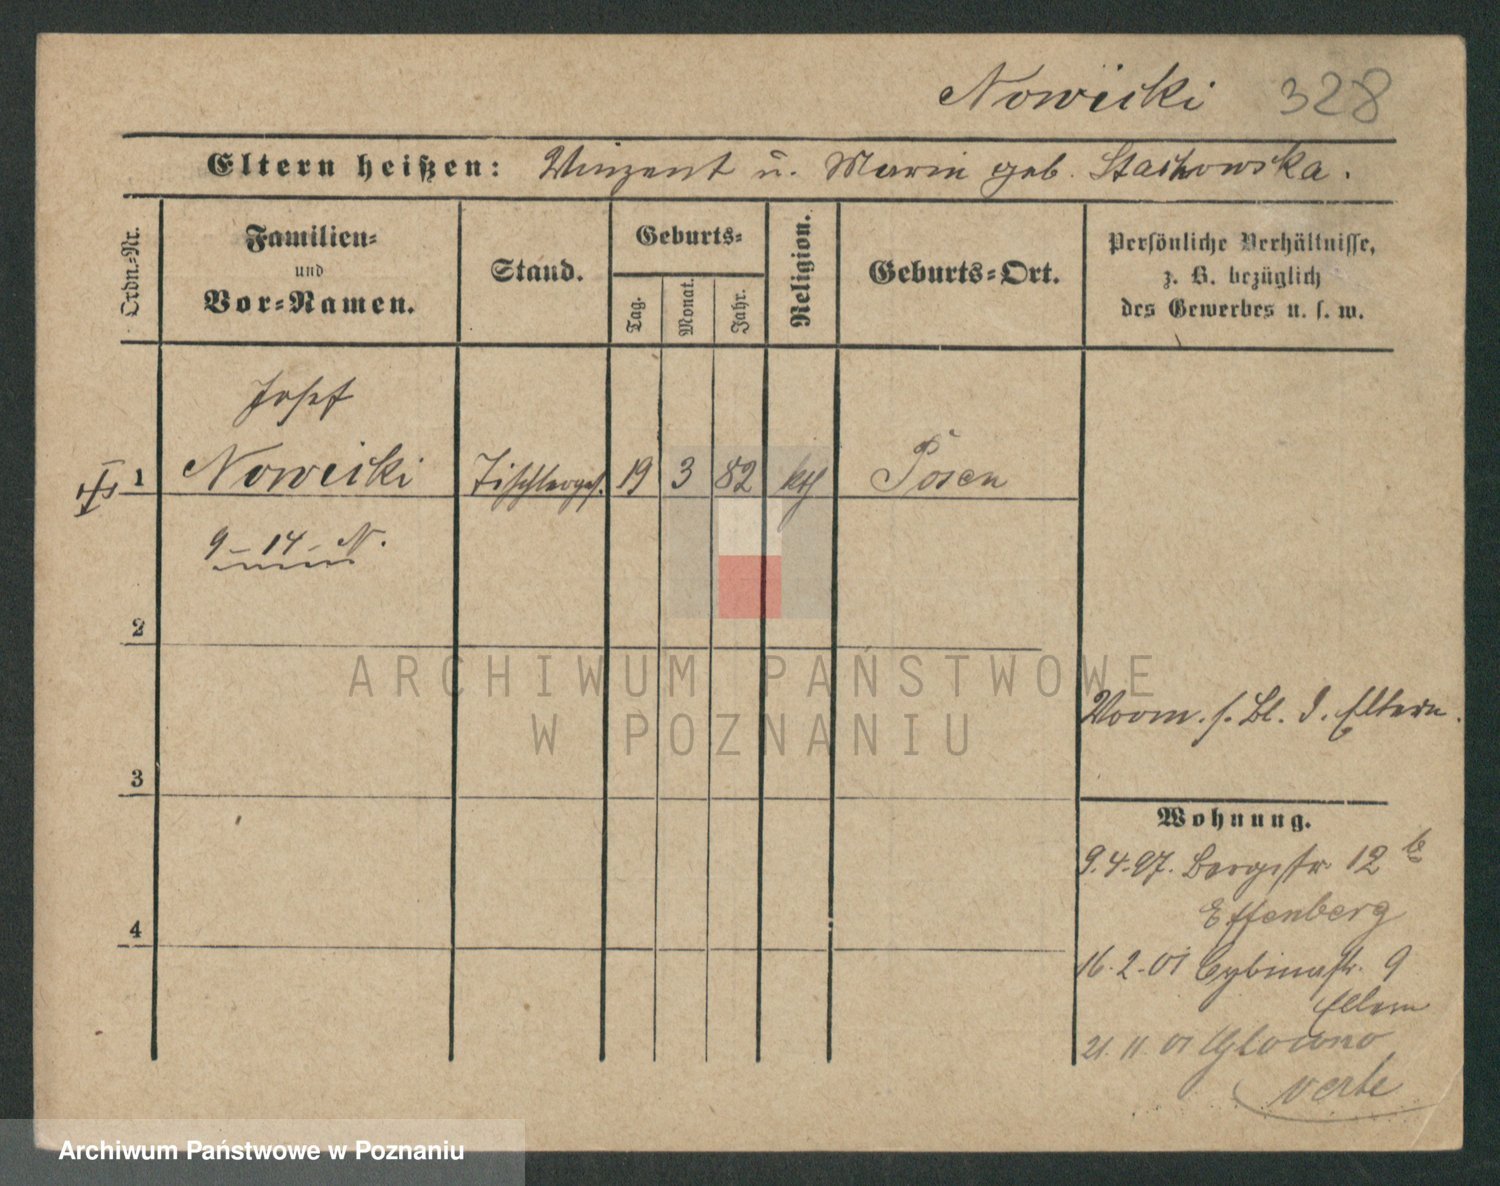 Nowicki 328
Eltern heißen: Vinzent u. Maria geb. Stachowska.
Ordn.-Nr.
Familien-
und
Vor-Namen.
Stand.
Geburts-
Tag.
Monat.
Jahr.
Religion.
Geburts-Ort.
Persönliche Verhältnisse,
z. B. bezüglich
des Gewerbes u. s. w.
Josef
1 Nowicki Tischlerges. 19 3 82 kth Posen
9-14-N.
2
3
4
ARCHIWUM PAŃSTWOWE
W POZNANIU
Vorm. s. Bl. d. Eltern.
Wohnung.
9.4.97. Bergstr. 12 b
Effenberg
16.2.01 Cybinastr. 9
Eltern
21.11.01 Glowno
verte
Archiwum Państwowe w Poznaniu